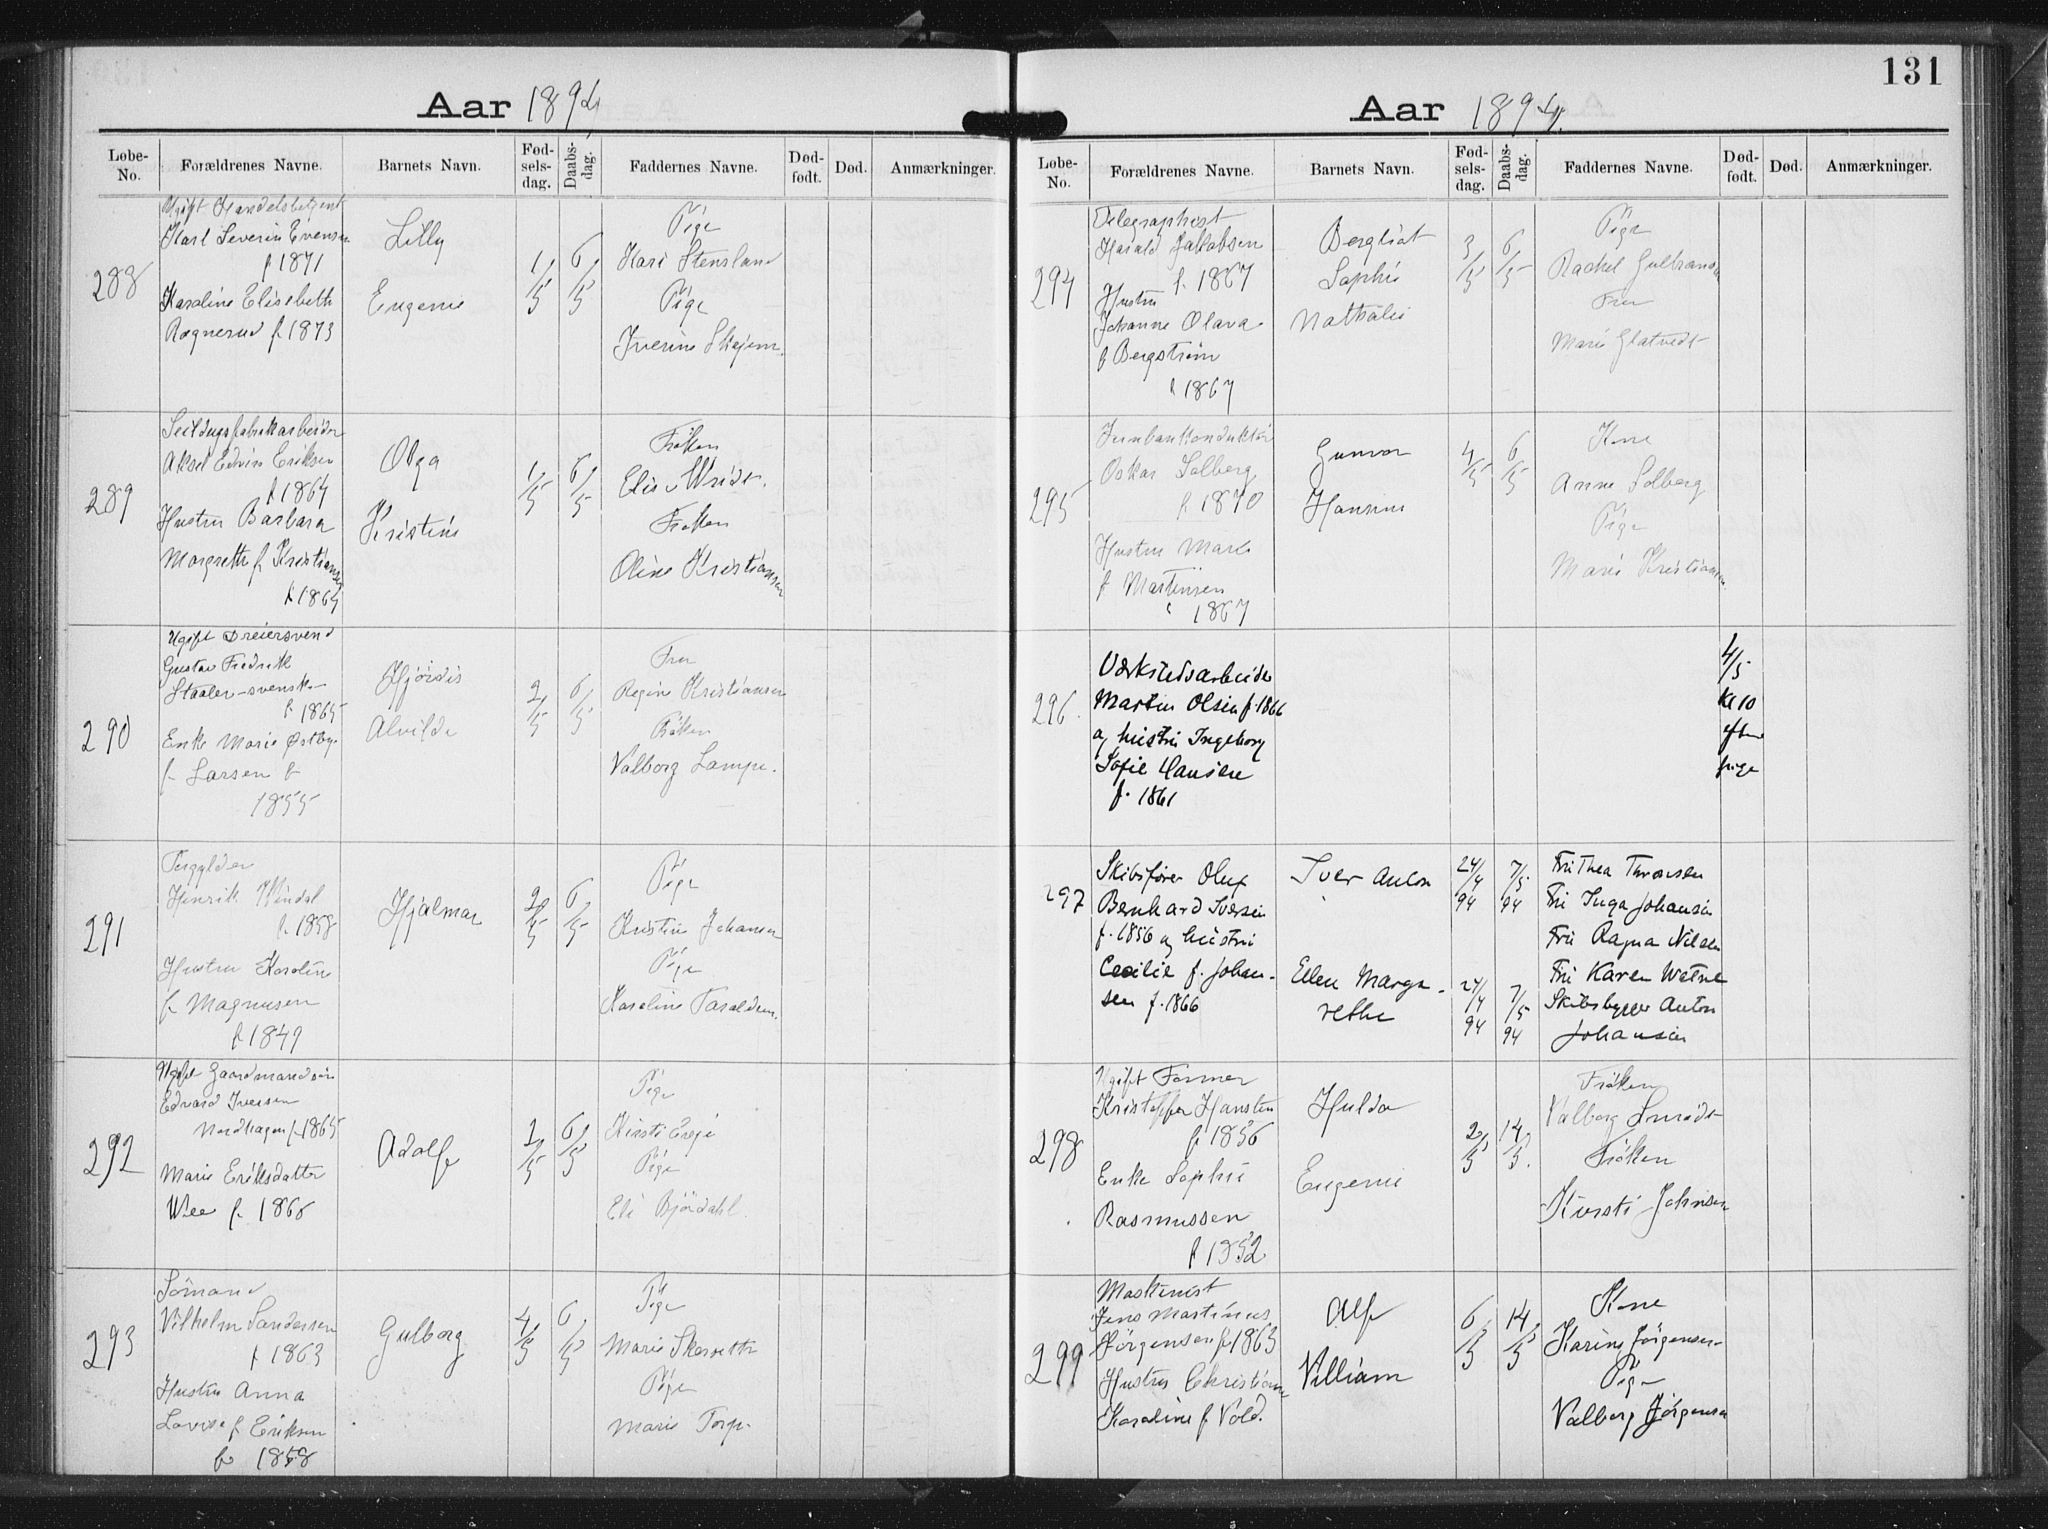 Aar 1894
Løbe-No. Forældrenes Navne. Barnets Navn. Fød-sels-dag. Daabs-dag. Faddernes Navne. Død-født. Død. Anmærkninger.
288
Ugift Handelsbetjent
Karl Severin Evensen
f 1871
Karoline Elisebeth
Rognerud f 1873
Lilly
Eugenie
1/5
6/5
Pige
Kari Stensland
Pige
Iverine Skejem.
289
Seildugsfabrikarbeider
Aksel Edvin Eriksen
f 1864
Hustru Barbara
Margreth f Kristiansen
f 1864
Olga
Kristine
1/5
6/5
Frøken
Frøken
Oline Kristiansen
290
Ugift Dreiersvend
Gustav Fredrik
Staaler-svensk-
f 1865
Enke Marie Østbye
f Larsen f
1855
Hjördis
Alvilde
2/5
6/5
Fru
Regine Kristiansen
Frøken
Valborg Lampe.
291
Forgylder
Henrik Windal
f 1858
Hustru Karoline
f Magnusen
f 1849
Hjalmar
2/5
6/5
Pige
Kristine Johansen
Pige
Karoline Taraldsen.
292
Ugift Gaardmandsøn
Edvard Iversen
Nordhagen f 1865
Marie Eriksdatter
Wee f 1866
Adolf
2/5
6/5
Pige
Kirsti
Pige
Eli Björdahl.
293
Sömand
Vilhelm Sandersen
f 1863
Hustru Anna
Lovise f Eriksen
f 1858
Gulborg
4/5
6/5
Pige
Marie Skarseth
Pige
Marie Torp.
131
Aar 1894.
Løbe-No. Forældrenes Navne. Barnets Navn. Fød-sels-dag. Daabs-dag. Faddernes Navne. Død-født. Død. Anmærkninger.
294
Telegraphist
Harald Jakobsen
f. 1867
Hustru
Johanne Olava
f Bergström
f 1867
Bergliot
Sophie
Nathalie
3/5
6/5
Pige
Rachel Gulbransen
Fru
Marie Glatvedt
295
Jernbankonduktör
Oskar Solberg
f 1870
Hustru Marie
f Martinsen
f 1867
Gunvor
Hansine
4/5
6/5
Kone
Anne Solberg
Pige
Marie Kristiansen.
296.
Værkstedsarbeider
Martin Olsen f. 1866
og hustru Ingeborg
Sofie Hansen
f. 1861
4/5
kl 10
efterm
pige
297
Skibsfører Oluf
Bernhard Iversen
f. 1856 og hustru
Cecilie f. Johan-
sen f. 1866
Iver Anton
24/4 94
7/5 94
Ellen Marga-
rethe
24/4 94
7/5 94
Fru Thea Thronsen
Fru Inga Johansen
Fru Ragna Nilsen
Fru Karen Wetne
Skibsbygger Anton
Johansen
298
Ugift Former
Kristoffer Hansten
f 1856
Enke Sophie
Rasmussen
f 1852
Hulda
Eugenie
2/5
14/5.
Frøken
Valborg
Frøken
Kirsti Johnsen
299
Maskinist
Jens Martinus
Jörgensen f 1863
Hustru Christiane
Karoline f Vold.
Alf
Villiam
6/5
14/5
Kone
Karine Jörgensen
Pige
Valborg Jörgensen